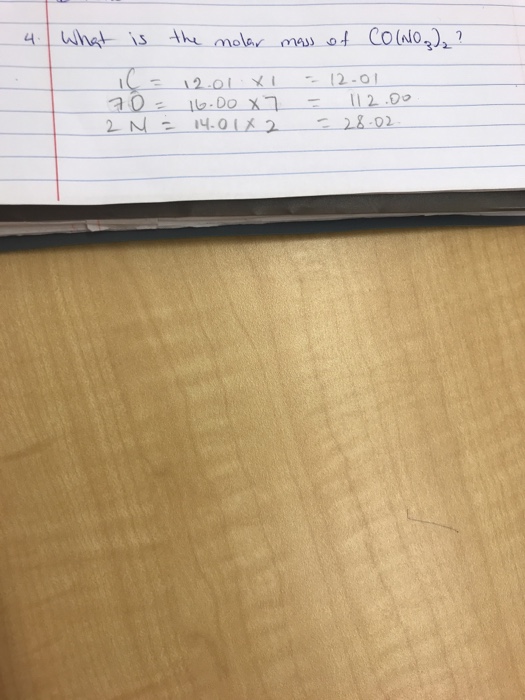 4. What is the molar mass of CO(NO₃)₂?
1C = 12.01 x1 = 12.01
7O = 16.00 x7 = 112.00
2 N = 14.01 x 2 = 28.02.